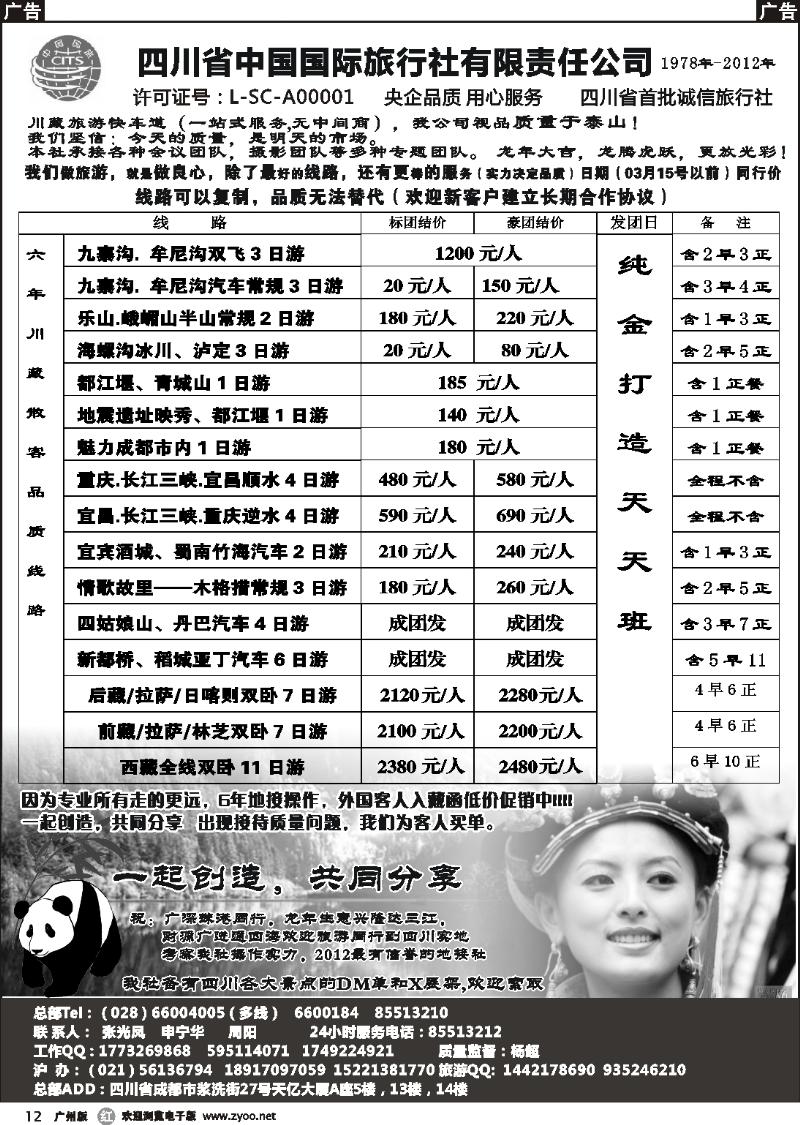 广告
广告
中国国旅
CITS
四川省中国国际旅行社有限责任公司 1978年-2012年
许可证号：L-SC-A00001 央企品质 用心服务 四川省首批诚信旅行社
川藏旅游快车道（一站式服务,无中间商），我公司视品质重于泰山！
我们坚信：今天的质量，是明天的市场。
本社承接各种会议团队，摄影团队等多种专题团队。 龙年大吉，龙腾虎跃，更放光彩！
我们做旅游，就是做良心，除了最好的线路，还有更棒的服务（实力决定品质）日期（03月15号以前）同行价
线路可以复制，品质无法替代（欢迎新客户建立长期合作协议）
线 路 标团结价 豪团结价 发团日 备 注
六年川藏散客品质线路
纯金打造天天班
九寨沟．牟尼沟双飞 3 日游 1200 元/人 含 2 早 3 正
九寨沟．牟尼沟汽车常规 3 日游 20 元/人 150 元/人 含 3 早 4 正
乐山.峨嵋山半山常规 2 日游 180 元/人 220 元/人 含 1 早 3 正
海螺沟冰川、泸定 3 日游 20 元/人 80 元/人 含 2 早 5 正
都江堰、青城山 1 日游 185 元/人 含 1 正餐
地震遗址映秀、都江堰 1 日游 140 元/人 含 1 正餐
魅力成都市内 1 日游 180 元/人 含 1 正餐
重庆.长江三峡.宜昌顺水 4 日游 480 元/人 580 元/人 全程不含
宜昌.长江三峡.重庆逆水 4 日游 590 元/人 690 元/人 全程不含
宜宾酒城、蜀南竹海汽车 2 日游 210 元/人 240 元/人 含 1 早 3 正
情歌故里——木格措常规 3 日游 180 元/人 260 元/人 含 2 早 5 正
四姑娘山、丹巴汽车 4 日游 成团发 成团发 含 3 早 7 正
新都桥、稻城亚丁汽车 6 日游 成团发 成团发 含 5 早 11
后藏/拉萨/日喀则双卧 7 日游 2120 元/人 2280 元/人 4 早 6 正
前藏/拉萨/林芝双卧 7 日游 2100 元/人 2200 元/人 4 早 6 正
西藏全线双卧 11 日游 2380 元/人 2480 元/人 6 早 10 正
因为专业所有走的更远，6年地接操作，外国客人入藏函低价促销中!!!!!
一起创造，共同分享 出现接待质量问题，我们为客人买单。
一起创造，共同分享
祝：广深珠港同行，龙年生意兴隆达三江，
财源广进通四海欢迎旅游同行到四川实地
考察我社操作实力，2012最有信誉的地接社
我社备有四川各大景点的DM单和X展架,欢迎索取
总部Tel：（028）66004005（多线） 6600184 85513210
联 系 人： 张光凤 申宁华 周阳 24小时服务电话：85513212
工作QQ：1773269868 595114071 1749224921 质量监督：杨超
沪 办：（021）56136794 18917097059 15221381770 旅游QQ: 1442178690 935246210
总部ADD：四川省成都市浆洗街27号天亿大厦A座5楼，13楼，14楼
12 广州版 红 欢迎浏览电子版 www.zyoo.net